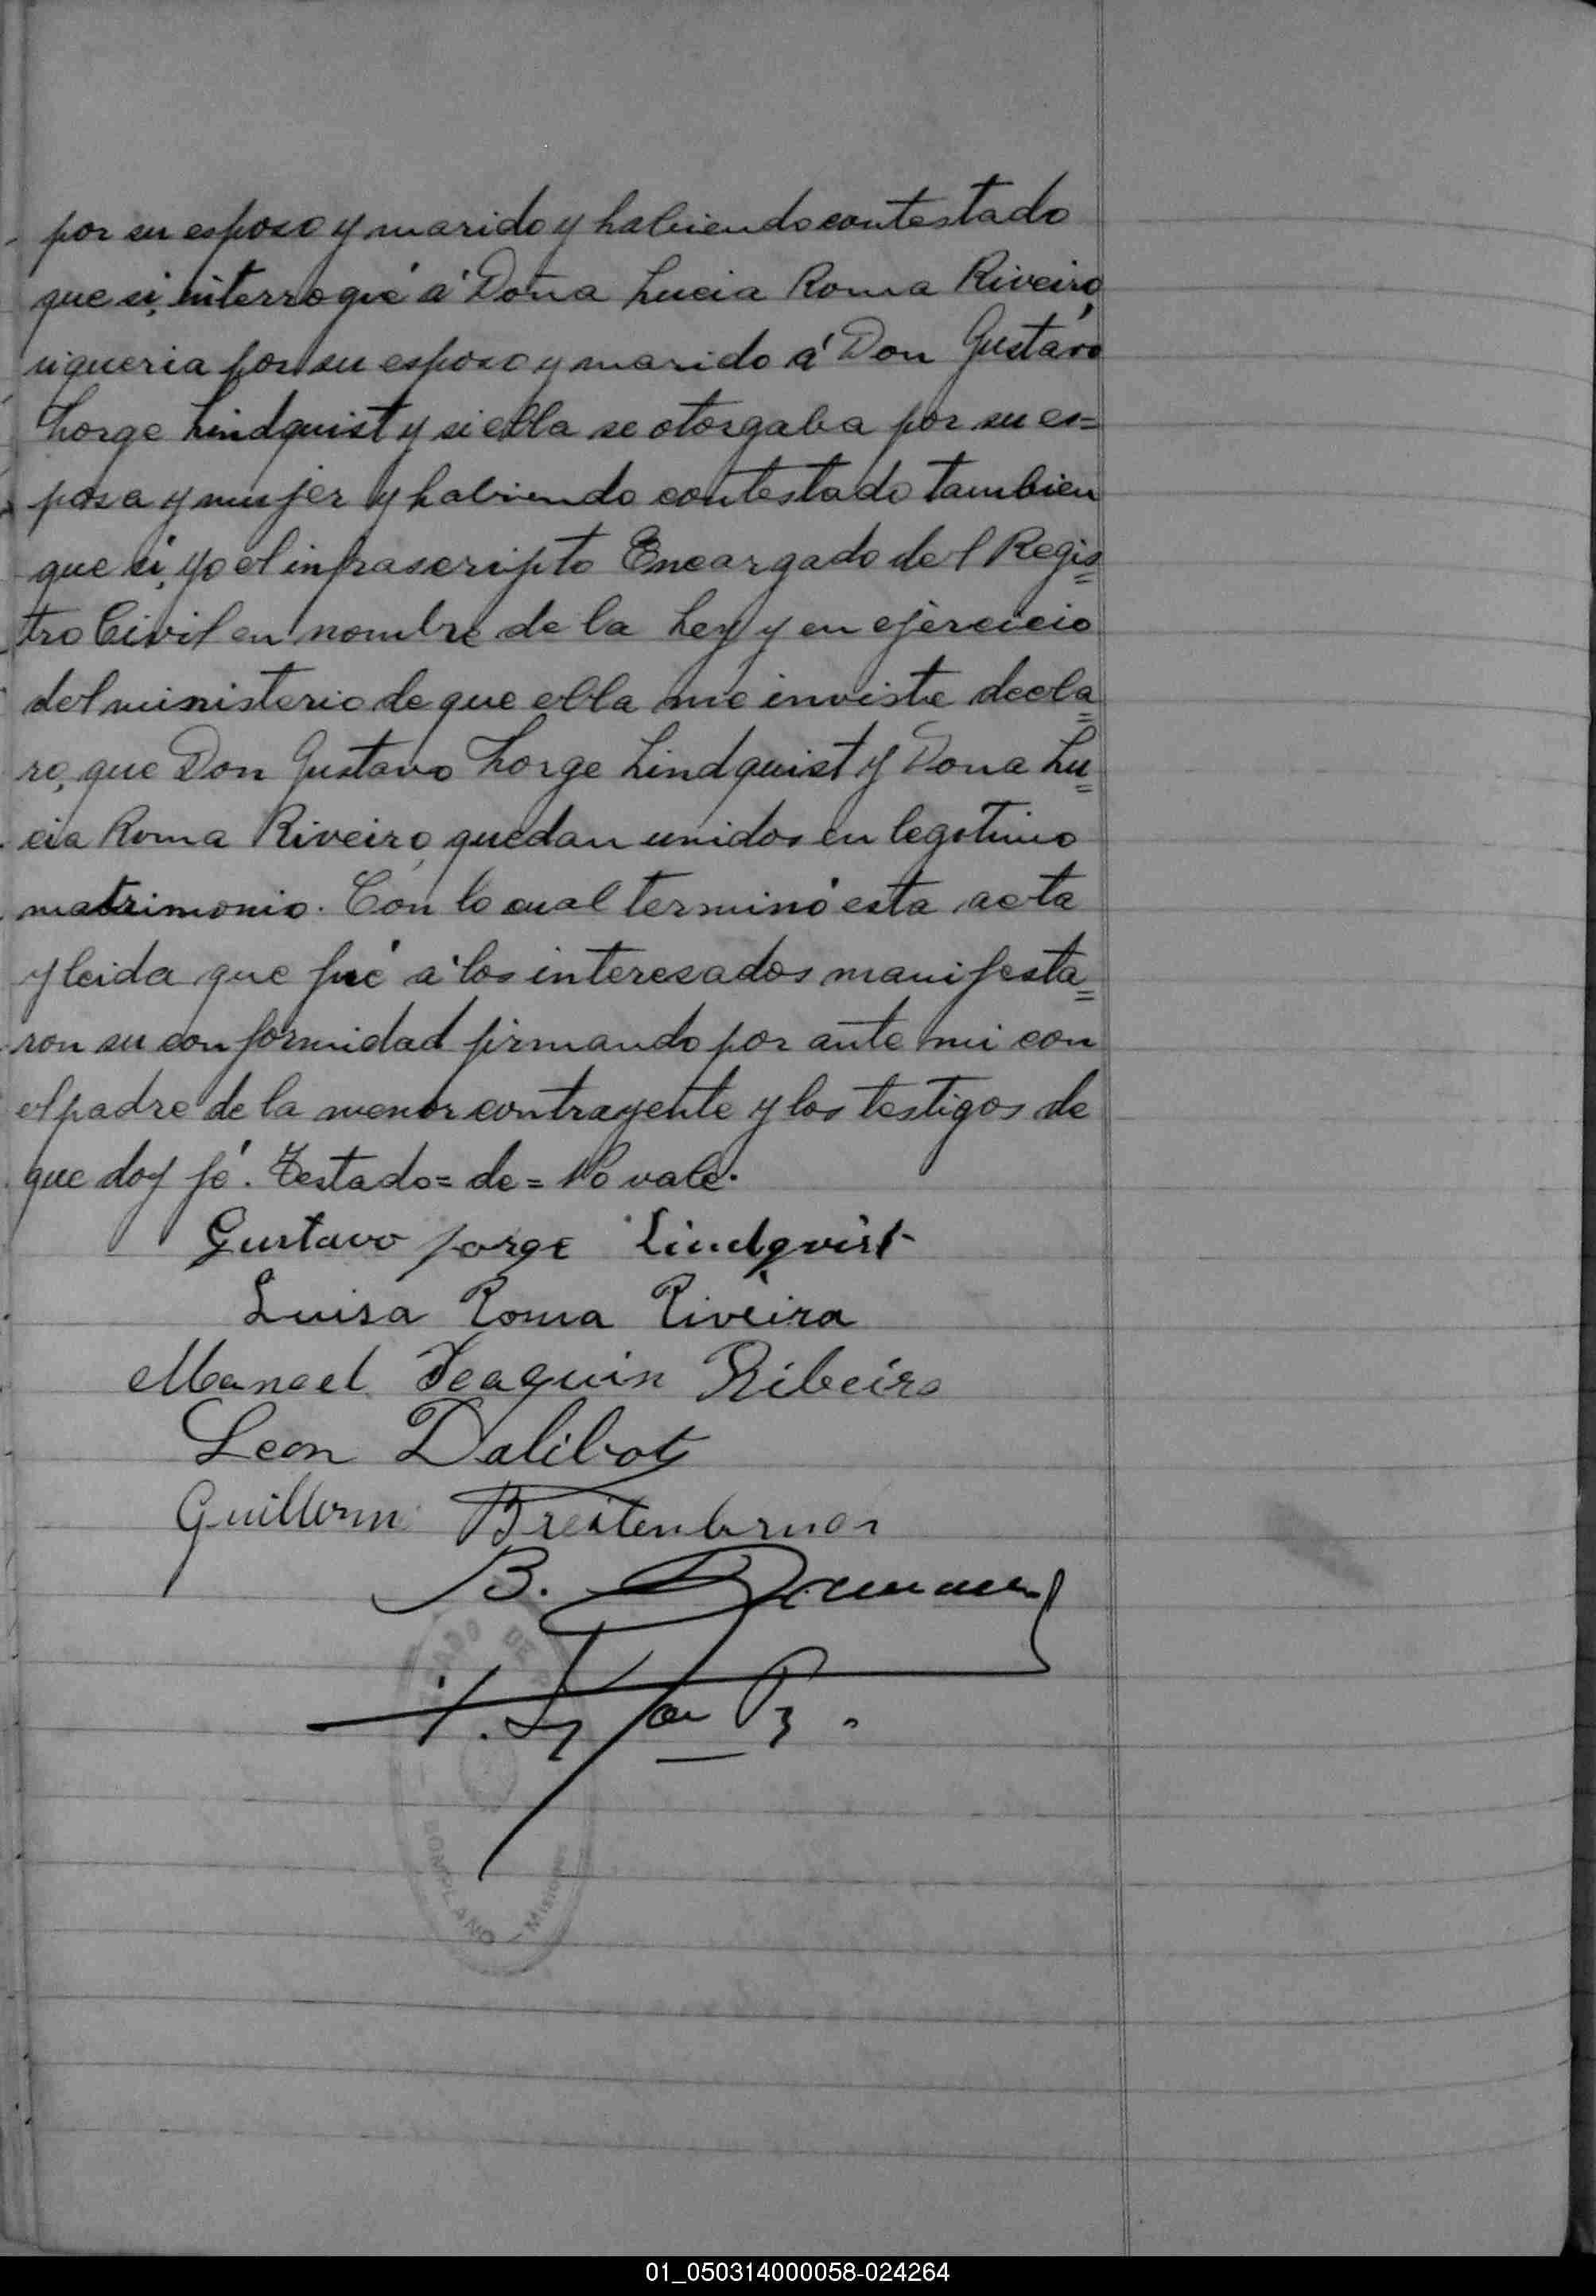 por su esposo y marido y habiendo contestado
que si, interrogué á Doña Lucia Roma Riveiro,
si queria por su esposo y marido á Don Gustavo
Lorge Lindquist y si ella se otorgaba por su es=
posa y mujer y habiendo contestado tambien
que si, yo el infrascripto Encargado del Regis=
tro Civil en nombre de la Ley y en ejercicio
del ministerio de que ella me inviste decla=
ro, que Don Gustavo Lorge Lindquist y Dona Lu=
cia Roma Riveiro, quedan unidos en legitimo
matrimonio. Con lo cual terminó esta acta
y leida que fué á los interesados manifesta=
ron su conformidad firmando por ante mi con
el padre de la menor contrayente y los testigos de
que doy fé. Testado=de=No vale.
Gustavo Jorge Lindqvist
Luisa Roma Riveira
Manoel Joaquin Ribeiro
Leon Dalibot
Guillerm
B.
BONPLAND - Misiones
01_050314000058-024264